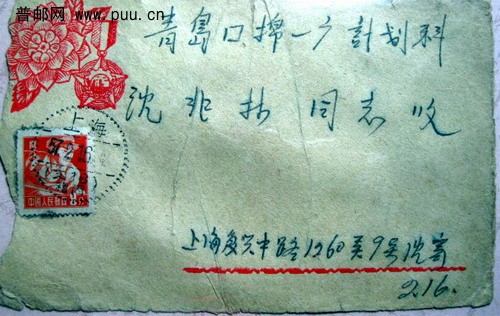 普邮网 www.puu.cn
青島口棉一廠計划科
沈非 同志收
上海
8
中国人民邮政 8分
上海复兴中路1260弄9号沈寄
2.16.